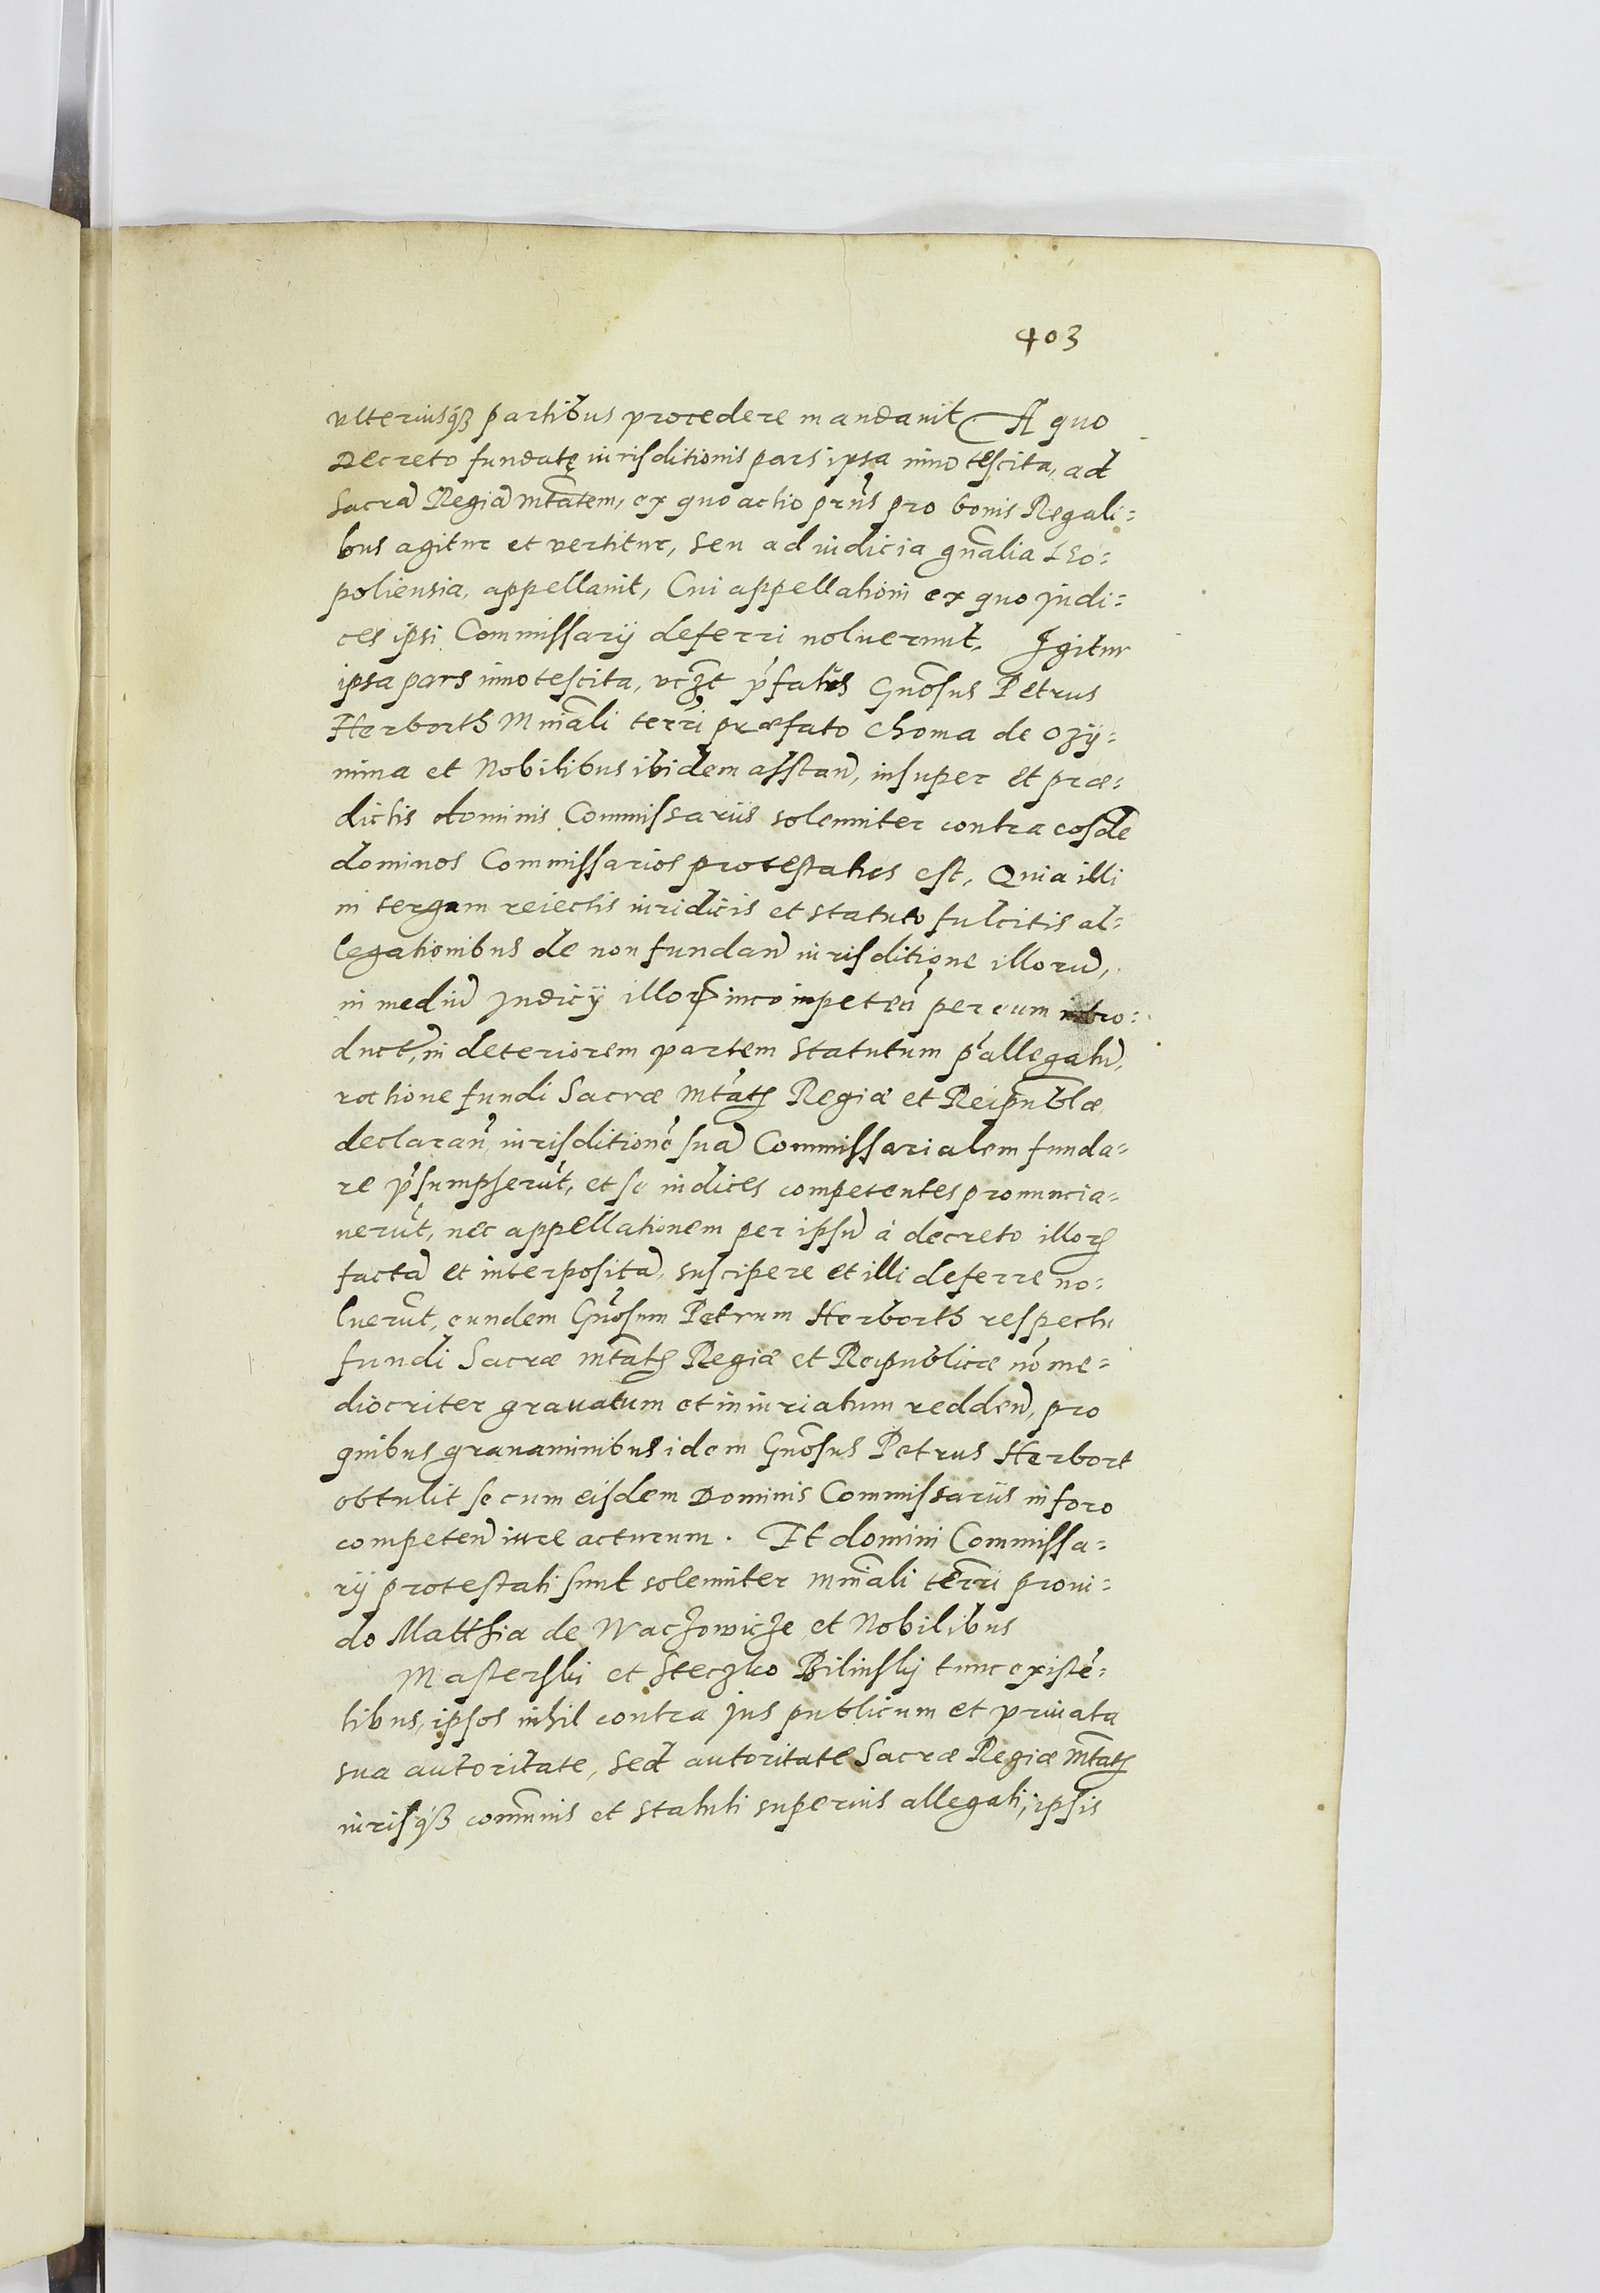 403
vlteriusq₃ partibus procedere mandauit A quo
Decreto fundatę iurisditionis pars ipsa innotescita, ad
Sacrã Regiã Mtãtem, ex quo actio prñs pro bonis Regali=
bus agitur et vertitur, seu ad iudicia gnãlia Leo=
poliensia, appellauit, Cui appellationi ex quo Judi=
ces ipsi Commissarij deferri noluerunt. Igitur
ipsa pars innotescita, vcʒt p̃fatus Gnõsus Petrus
Herborth Mniãli terrĩ præfato Choma de Ozy=
mina et Nobilibus ibidem asstañ, insuper et præ=
dictis dominis Commissariis solenniter contra eosdẽ
dominos Commissarios protestatus est, Quia illi
in tergum reiectis iuridicis et statuto fulcitis al=
legationibus de non fundañ iurisditione illorũ,
in mediũ Judicij illorꝝ incompeteñ per eum intro=
duct, in deteriorem partem statutum p̃allegatũ,
ratione fundi Sacræ Mtãtꝭ Regiæ et Reipublæ
declarañ, iurisditionẽ suã Commissarialem funda=
re p̃sumpserũt, et se iudices competentes pronuncia=
uerũt, nec appellationem per ipsũ à decreto illorꝝ
factã et interpositã, suscipere et illi deferre no=
luerũt, eundem Gnõsum Petrum Herborth respectu
fundi Sacræ Mtãtꝭ Regiæ et Reipublicæ nõ me=
diocriter grauatum et iniuriatum reddeñ, pro
quibus grauaminibus idem Gnõsus Petrus Herbort
obtulit se cum eisdem Dominis Commissariis in foro
competeñ iure acturum. Et domini Commissa=
rij protestati sunt solenniter Mniãli terrĩ proui=
do Matthia de Waczowicze et Nobilibus
Masterski et Steczko Bilinskij tunc existẽ=
tibus, ipsos nihil contra Jus publicum et priuata
sua autoritate, sed autoritate Sacræ Regiæ Mtãtꝭ
iurisq₃ com̃unis et statuti superius allegati, ipsis